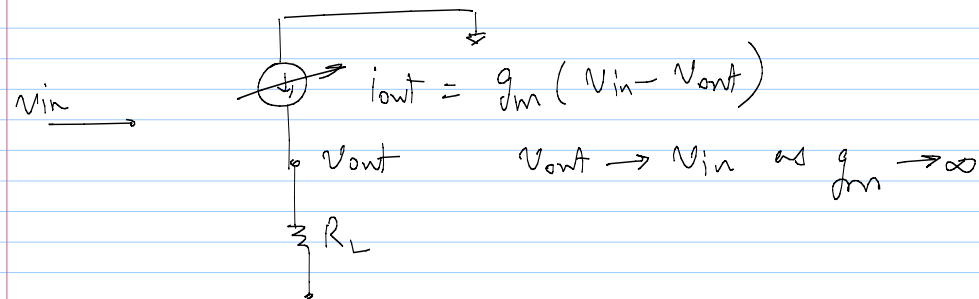 vin
iout = gm (vin - vout)
vout
vout → vin as gm → ∞
RL